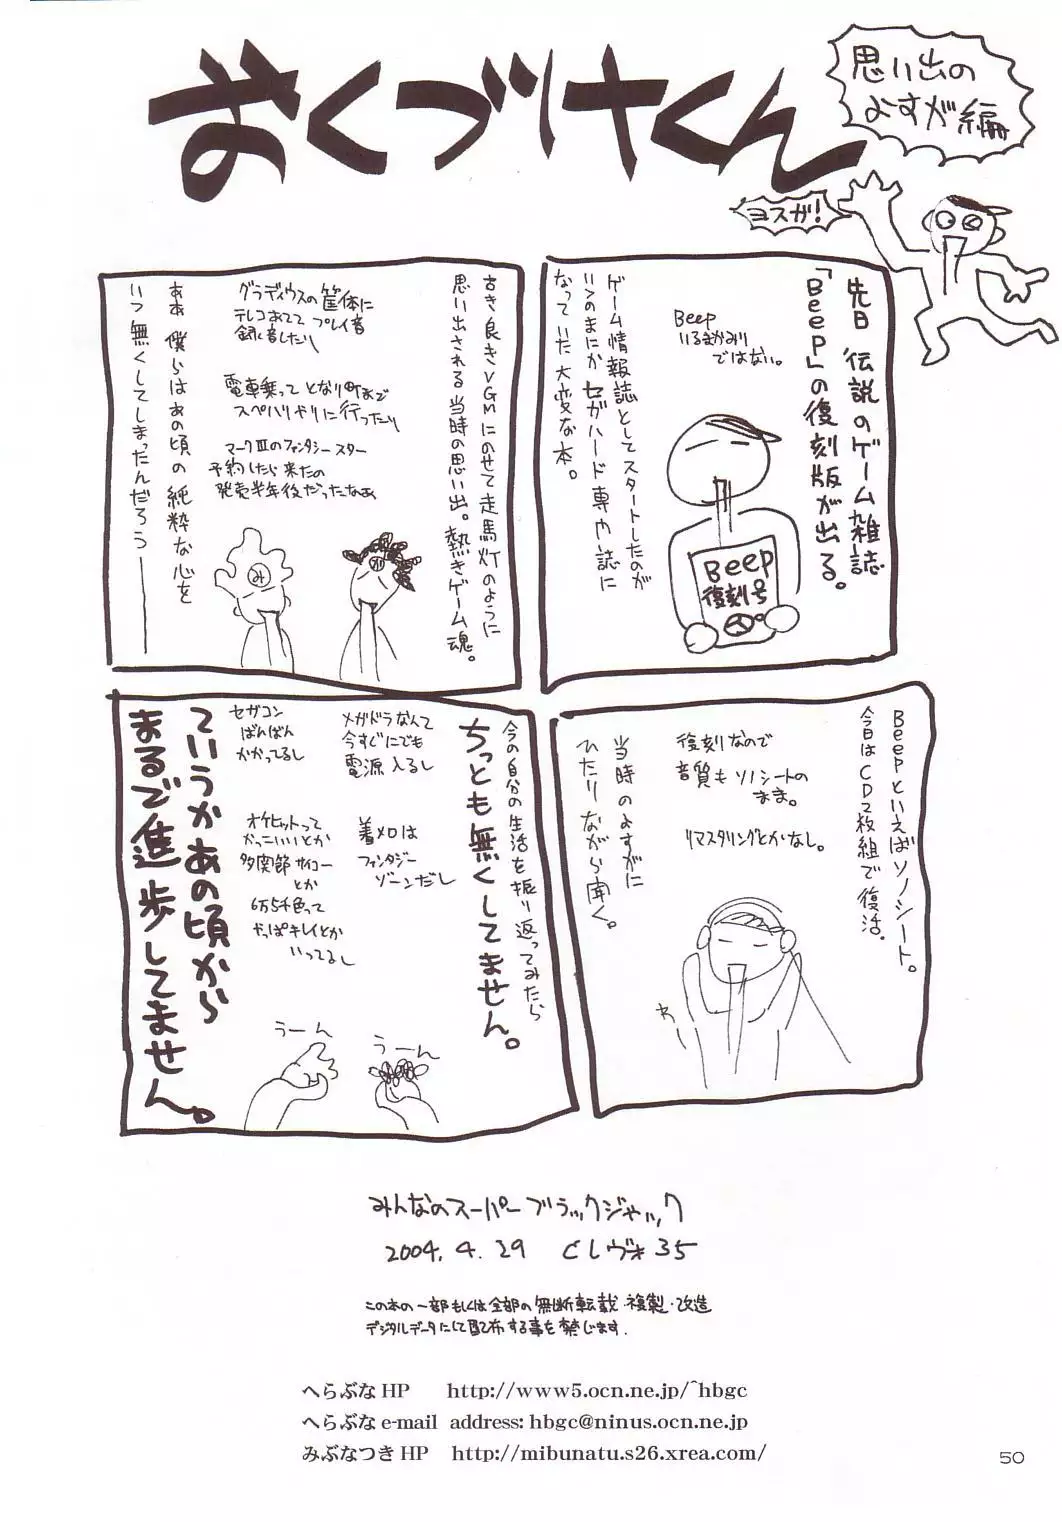 おくづけくん
思い出の
よすが編
ヨスガ!
先日 伝説のゲーム雑誌
「Beep」の復刻版が出る。
Beep
いるまかみり
ではない。
ゲーム情報誌としてスタートしたのが
いつのまにかセガハード専門誌に
なっていた大変な本。
Beep
復刻号
古き良きVGMにのせて走馬灯のように
思い出される当時の思い出。熱きゲーム魂。
グラディウスの筐体に
テレコあてて プレイ音
録音したり
電車乗って となり町まで
スペハリドリに行ったり
マークⅢのファンタシースター
予約したら来たの
発売半年後だったなぁ
み
ああ 僕らはあの頃の純粋な心を
いつ無くしてしまったんだろう―――
Beepといえばソノシート。
今日はCD2枚組で復活。
復刻なので
音質もソノシートの
まま。
リマスタリングとかなし。
当時のよすがに
ひたりながら聞く。
今の自分の生活を振り返ってみたら
ちっとも無くしてません。
メガドラなんて
今すぐにでも
電源入るし
セガコン
ばんばん
かかってるし
着メロは
ファンタジー
ゾーンだし
オケヒットって
かっこいいとか
多関節サイコー
とか
6万5千色って
やっぱキレイとか
いってるし
ていうかあの頃から
まるで進歩してません。
うーん
うーん
みんなのスーパーブラックジャック
2004.4.29 Cレヴォ35
この本の一部もしくは全部の無断転載・複製・改造
デジタルデータにして配布する事を禁じます.
へらぶな HP http://www5.ocn.ne.jp/~hbgc
へらぶな e-mail address: hbgc@ninus.ocn.ne.jp
みぶなつき HP http://mibunatu.s26.xrea.com/
50